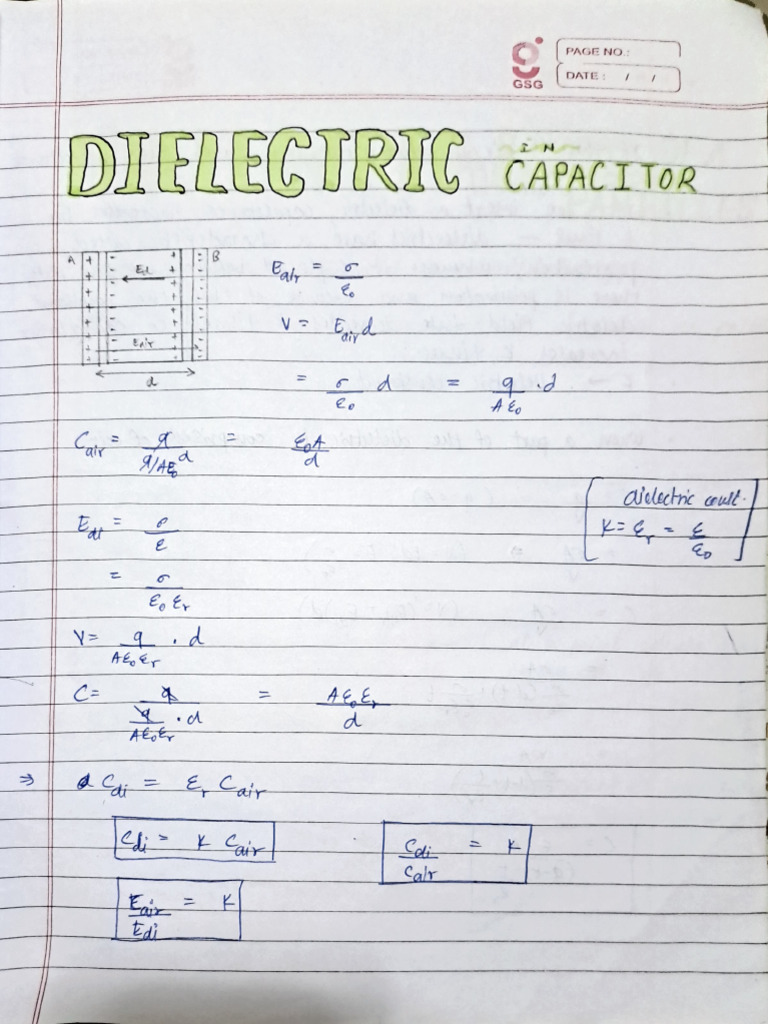 GSG
PAGE NO.:
DATE: / /
DIELECTRIC IN CAPACITOR
A B
E_air = σ/ε₀
E_di
V = E_air d
E_air
d
= σ/ε₀ d = q/Aε₀ . d
C_air = q/(q/Aε₀ d) = ε₀A/d
dielectric const.
K = ε_r = ε/ε₀
E_di = σ/ε
= σ/ε₀ε_r
V = q/Aε₀ε_r . d
C = q/(q/Aε₀ε_r . d) = Aε₀ε_r/d
⇒ C_di = ε_r C_air
C_di = K C_air
C_di/C_air = K
E_air/E_di = K